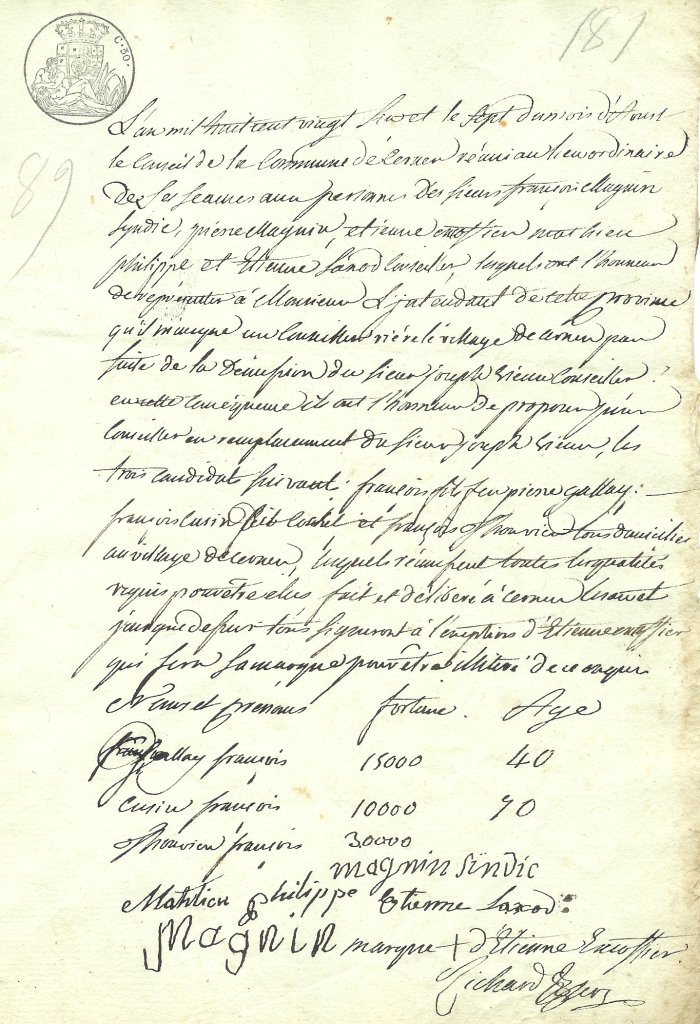 C. 30.
181
89
L'an mil huit cent vingt six et le sept du mois d'Aoust
le Conseil de la Commune de Cernex réuni au lieu ordinaire
de ses séances aux personnes des sieurs françois Magnin
Syndic, pierre Magnin, etienne Excoffier, mathieu
philippe et Etienne Saxod Conseiller, lesquels ont l'honneur
de représenter à Monsieur L'jntendant de cette province
qu'il manque un Conseiller rière le village de Cernex par
suite de la Démission du sieur joseph Vieux Conseiller.
en cette Conséquence ils ont l'honneur De proposer pour
Conseiller en remplacement du sieur joseph Vieux, les
trois candidat suivant: françois fils feu pierre gallay:
françois Cusin et françois Thouvier tous domiciliés
au village de Cernex, lesquels réunissent toutes les qualités
requis pour être élus fait et délibéré à Cernex les an et
jour que dessus tous signeront à l'éxeptions d'Etienne excoffier
qui fera sa marque pour être illitéré de ce enquis
Noms et prénoms fortune. Age
gallay françois 15000 40
Cusin françois 10000 70
Thouvier françois 30000
magnin sindic
Mathieu philippe Etienne Saxod
Magnin marque + d'Etienne Excoffier.
Richard